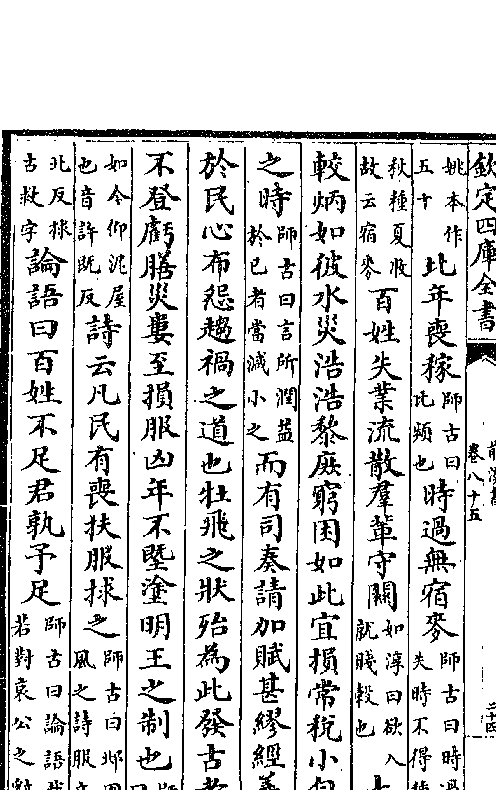 欽定四庫全書
前漢書
卷八十五
二十四
姚本作
五十
比年喪稼師古曰
比頻也
時過無宿麥師古曰時過
失時不得
秋種夏收
故云宿麥
百姓失業流散羣輩守關如淳曰欲入
就賤穀也
較炳如彼水災浩浩黎庶窮困如此宜損常稅小
之時師古曰言所潤益
於已者當減小之
而有司奏請加賦甚繆經義
於民心布怨趨禍之道也牡飛之狀殆為此發古
不登虧膳災婁至損服凶年不塈塗明王之制也
如今仰泥屋
也音許既反
詩云凡民有喪扶服捄之師古曰邶
風之詩服
北反捄
古救字
論語曰百姓不足君孰予足師古曰論語
若對哀公之